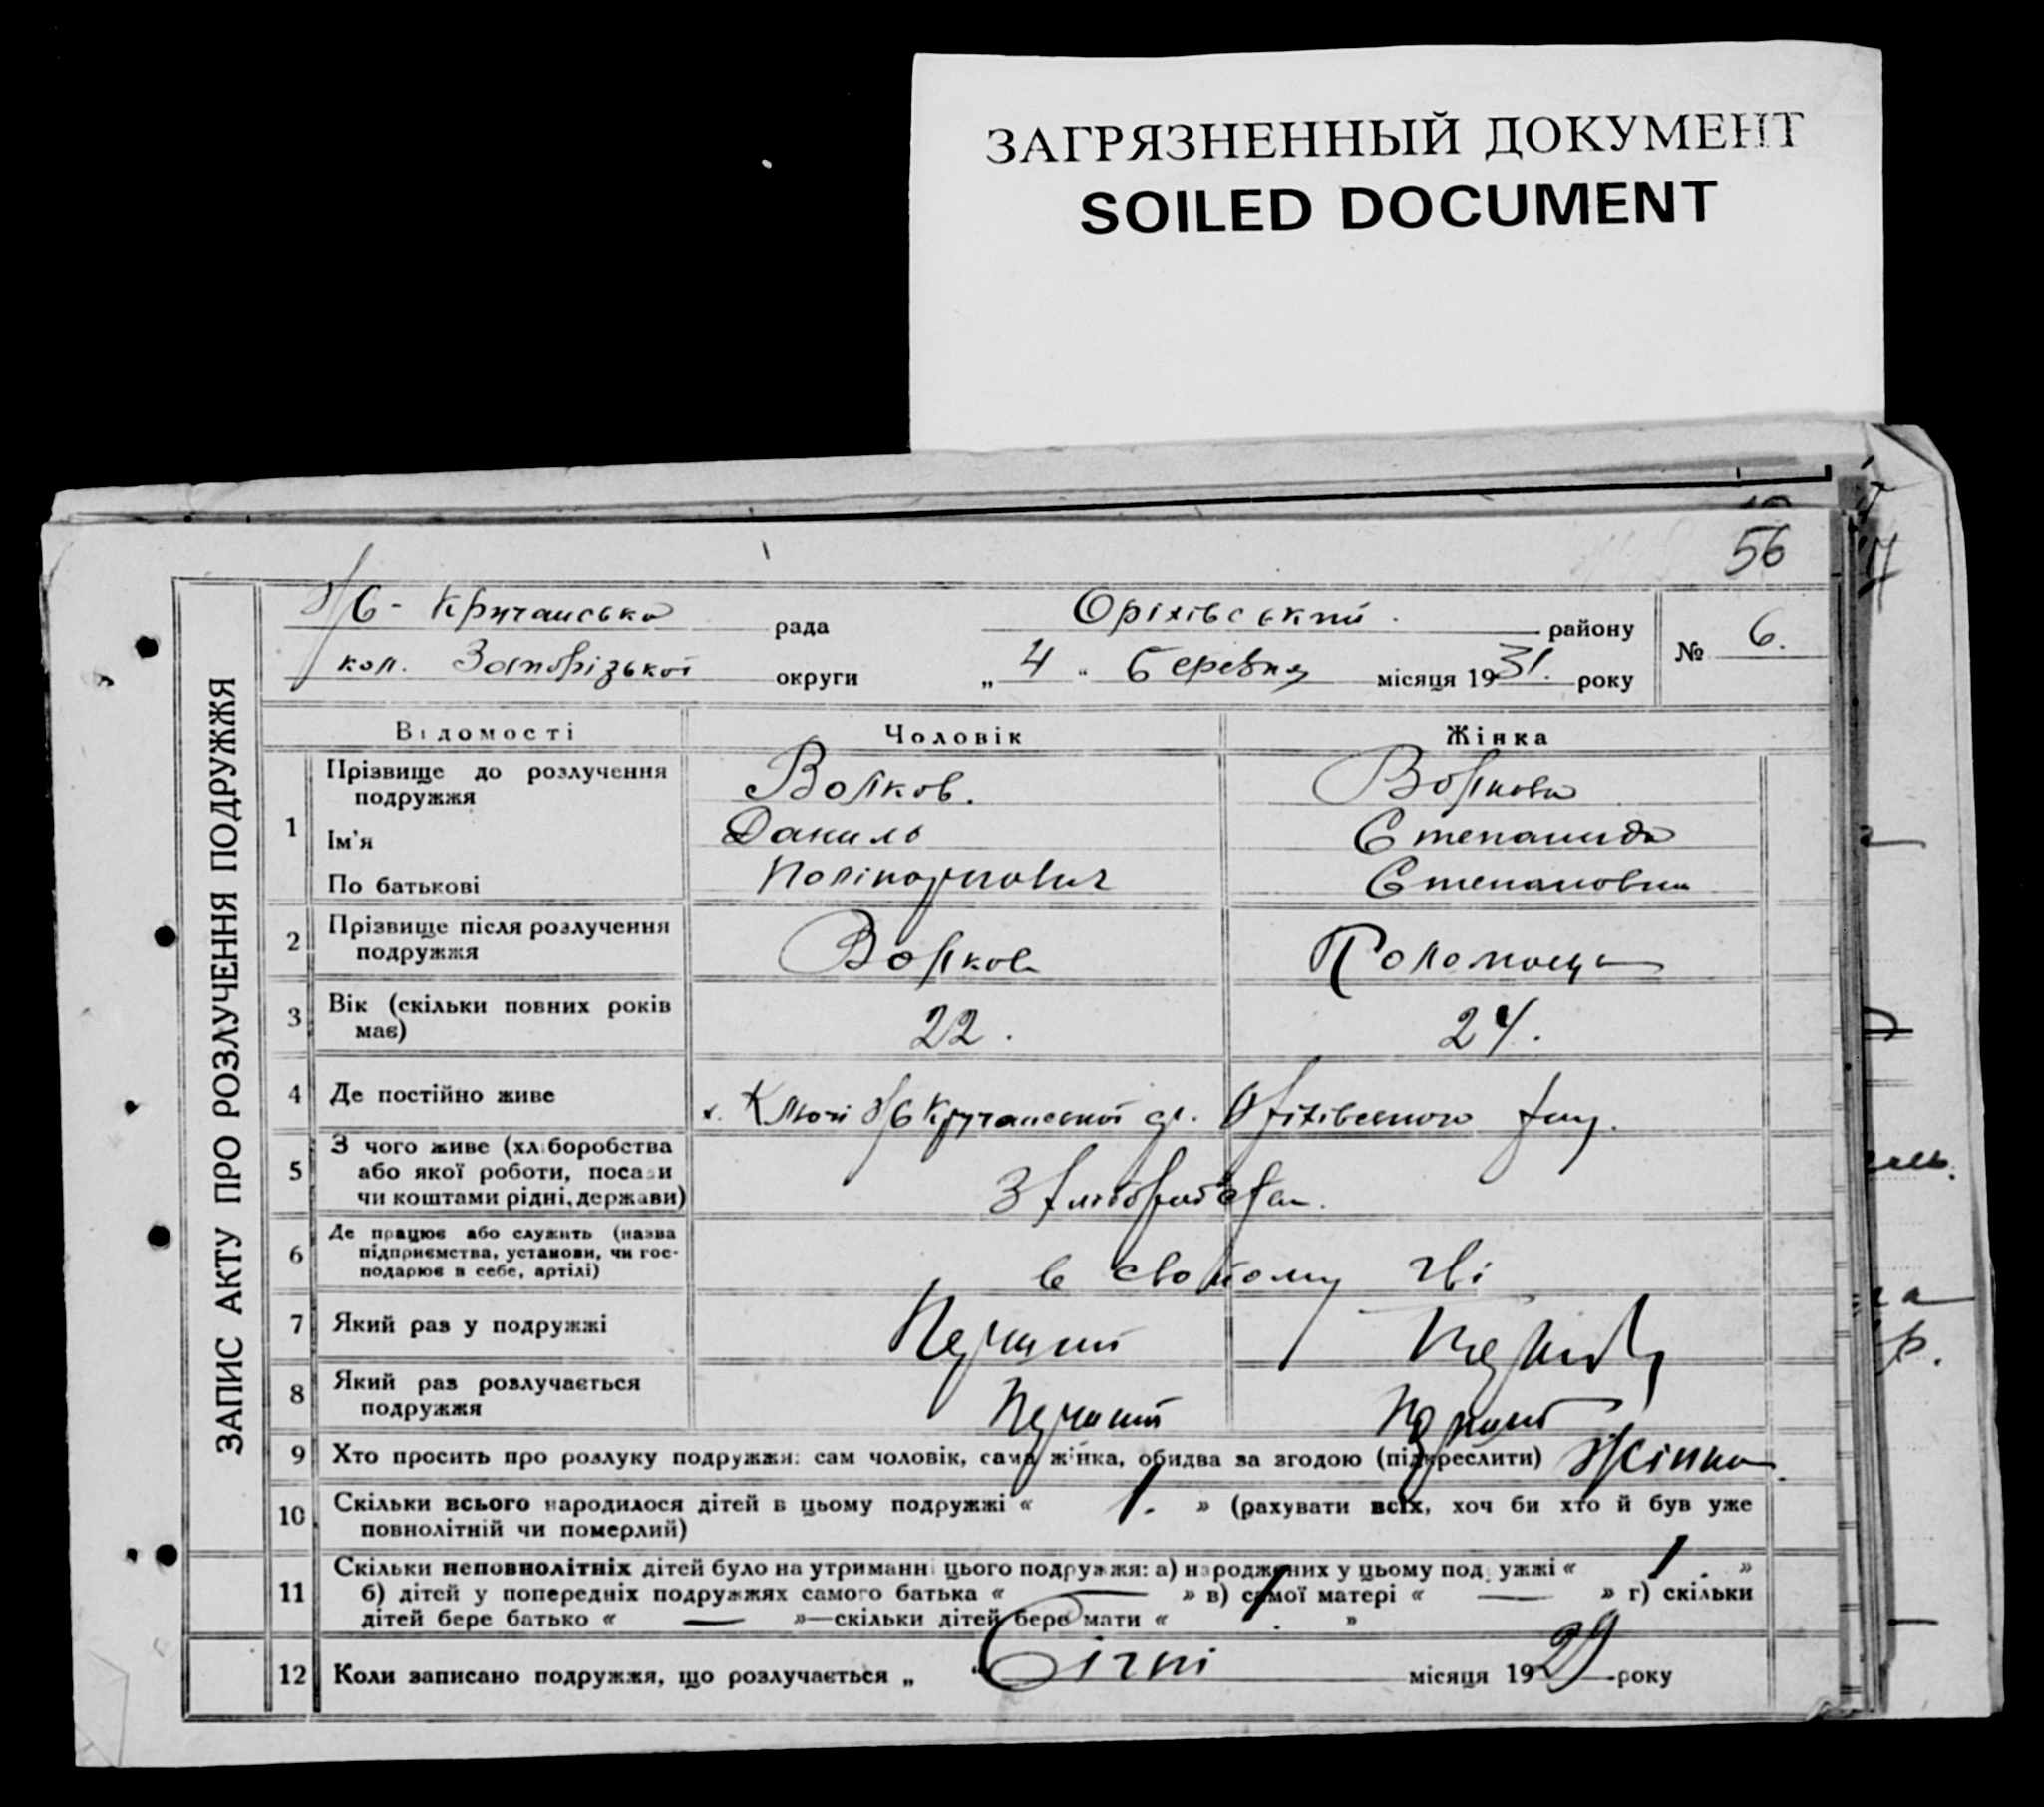 ЗАГРЯЗНЕННЫЙ ДОКУМЕНТ
SOILED DOCUMENT
56
ЗАПИС АКТУ ПРО РОЗЛУЧЕННЯ ПОДРУЖЖЯ
рада Оріхівський району № 6.
кол. Запорізької округи „ 4 " Березня місяця 1931. року
Відомості Чоловік Жінка
1 Прізвище до розлучення подружжя Волков. Волкова
Ім'я Данило Степанида
По батькові Полікарпович Степановна
2 Прізвище після розлучення подружжя Волков
3 Вік (скільки повних років має) 22. 24.
4 Де постійно живе Оріхівського
5 З чого живе (хліборобства або якої роботи, посади чи коштами рідні, держави) З
6 Де працює або служить (назва підприємства, установи, чи господарює в себе, артілі) в свойому
7 Який раз у подружжі Перший
8 Який раз розлучається подружжя Перший
9 Хто просить про розлуку подружжя: сам чоловік, сама жінка, обидва за згодою (підкреслити) Жінка.
10 Скільки всього народилося дітей в цьому подружжі « 1. » (рахувати всіх, хоч би хто й був уже
повнолітній чи померлий)
11 Скільки неповнолітніх дітей було на утриманні цього подружжя: а) народжених у цьому подружжі « 1. »
б) дітей у попередніх подружжях самого батька « — » в) самої матері « — » г) скільки
дітей бере батько « — »—скільки дітей бере мати « 1. »
12 Коли записано подружжя, що розлучається „ " Січні місяця 1929 року